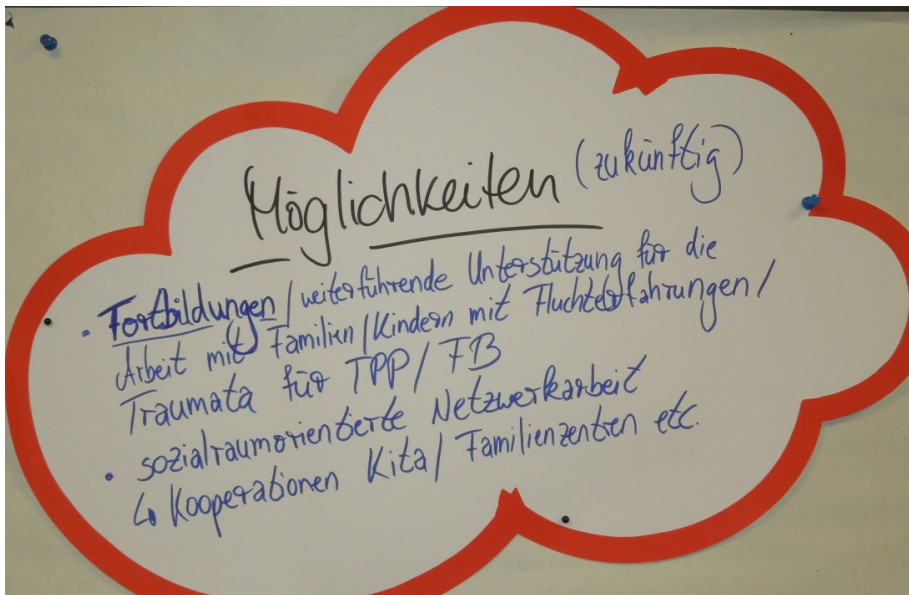 Möglichkeiten (zukünftig)
• Fortbildungen / weiterführende Unterstützung für die
Arbeit mit Familien / Kindern mit Fluchterfahrungen /
Traumata für TPP / FB
• sozialraumorientierte Netzwerkarbeit
↳ Kooperationen Kita / Familienzentren etc.